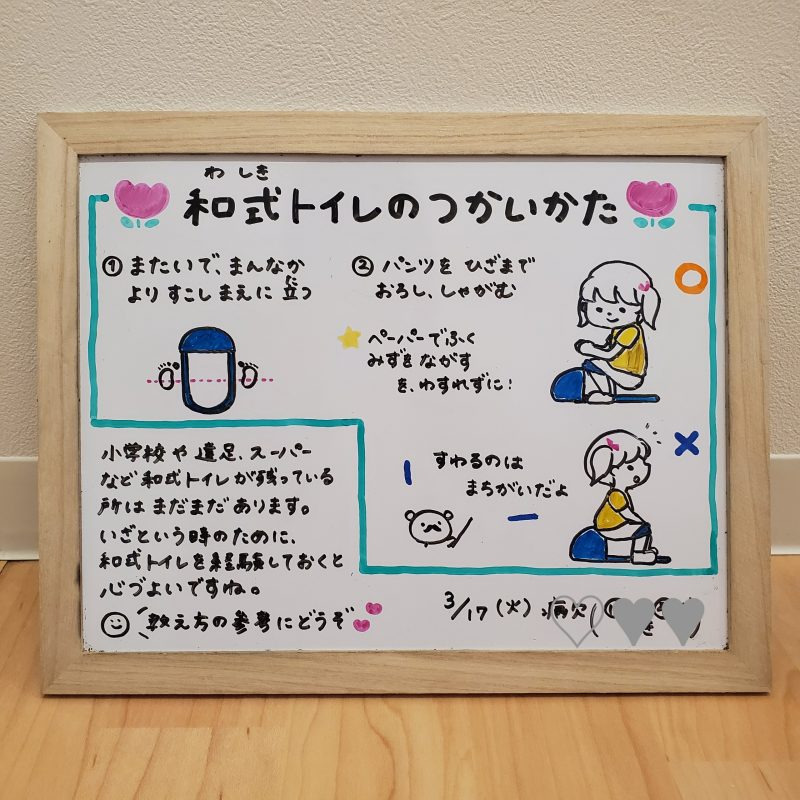 わ しき
和式トイレのつかいかた
① またいで、まんなか
より すこし まえに 立つ
た
② パンツを ひざまで
おろし、しゃがむ
ペーパーでふく
みずを ながす
を、わすれずに!
すわるのは
まちがいだよ
小学校や遠足、スーパー
など和式トイレが残っている
所はまだまだあります。
いざという時のために、
和式トイレを経験しておくと
心づよいですね。
教え方の参考にどうぞ
3/17(火) 病欠(